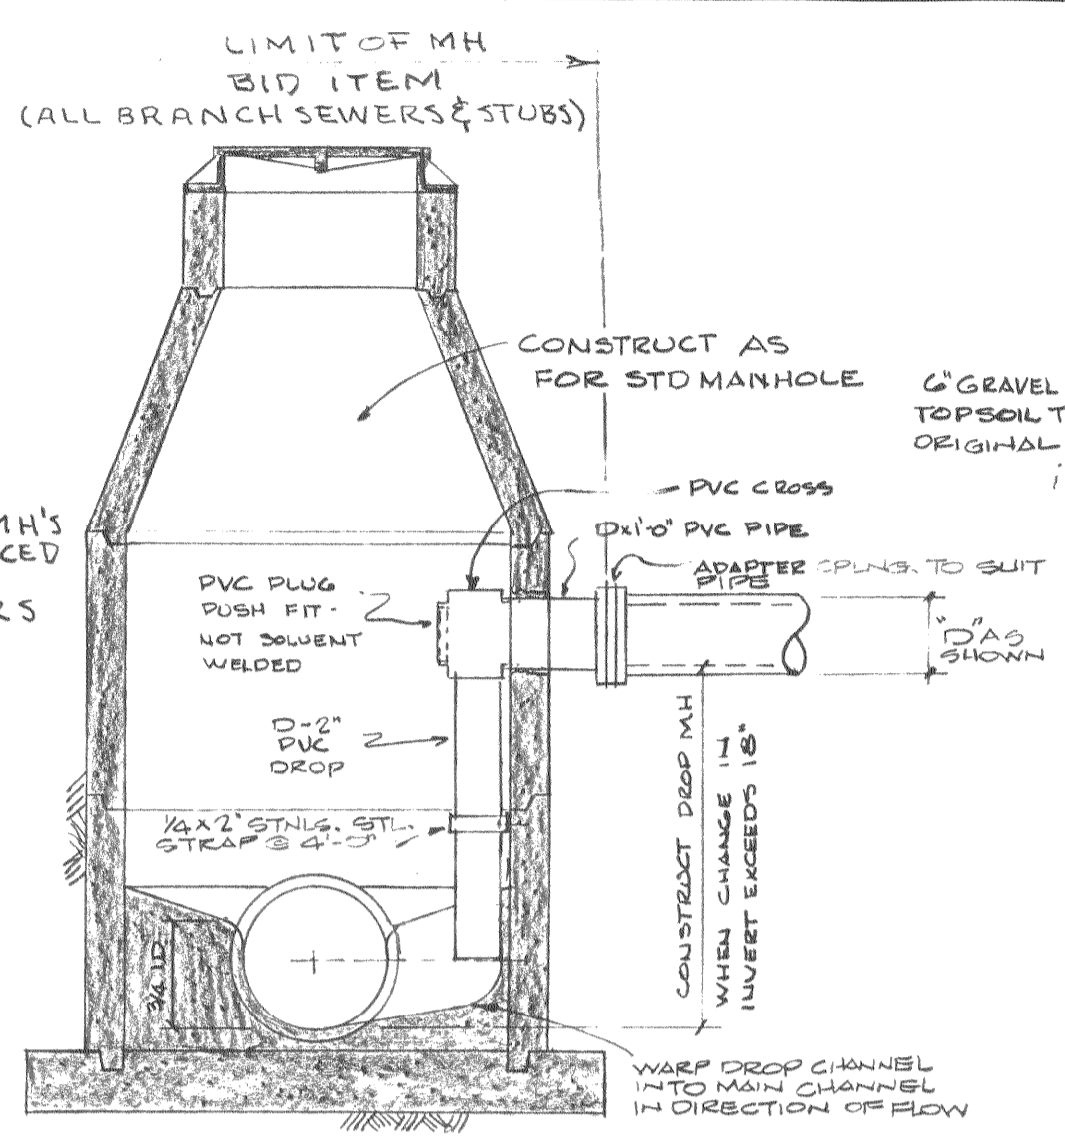 LIMIT OF MH
BID ITEM
(ALL BRANCH SEWERS & STUBS)
CONSTRUCT AS
FOR STD MANHOLE
6" GRAVEL
TOPSOIL T
ORIGINAL
PVC CROSS
Dx1'-0" PVC PIPE
ADAPTER CPLNG. TO SUIT
PIPE
MH'S
CED
RS
PVC PLUG
PUSH FIT-
NOT SOLVENT
WELDED
"D" AS
SHOWN
D-2"
PVC
DROP
1/4 x 2" STNLS. STL.
STRAP @ 4'-0"
CONSTRUCT DROP MH
WHEN CHANGE IN
INVERT EXCEEDS 18"
3/4 ID
WARP DROP CHANNEL
INTO MAIN CHANNEL
IN DIRECTION OF FLOW